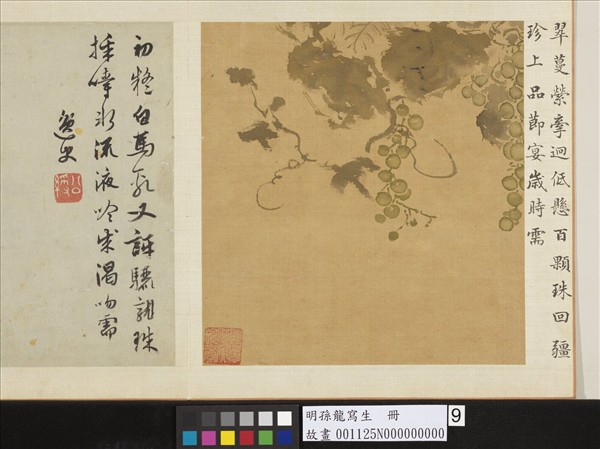 翠蔓縈牽迴低懸百顆珠回疆
珍上品節宴歲時需
初疑白馬乳又訝驪龍珠
搖啐冰流液吟成渴吻需
逸史
明孫龍寫生 冊
故畫001125N000000000
9